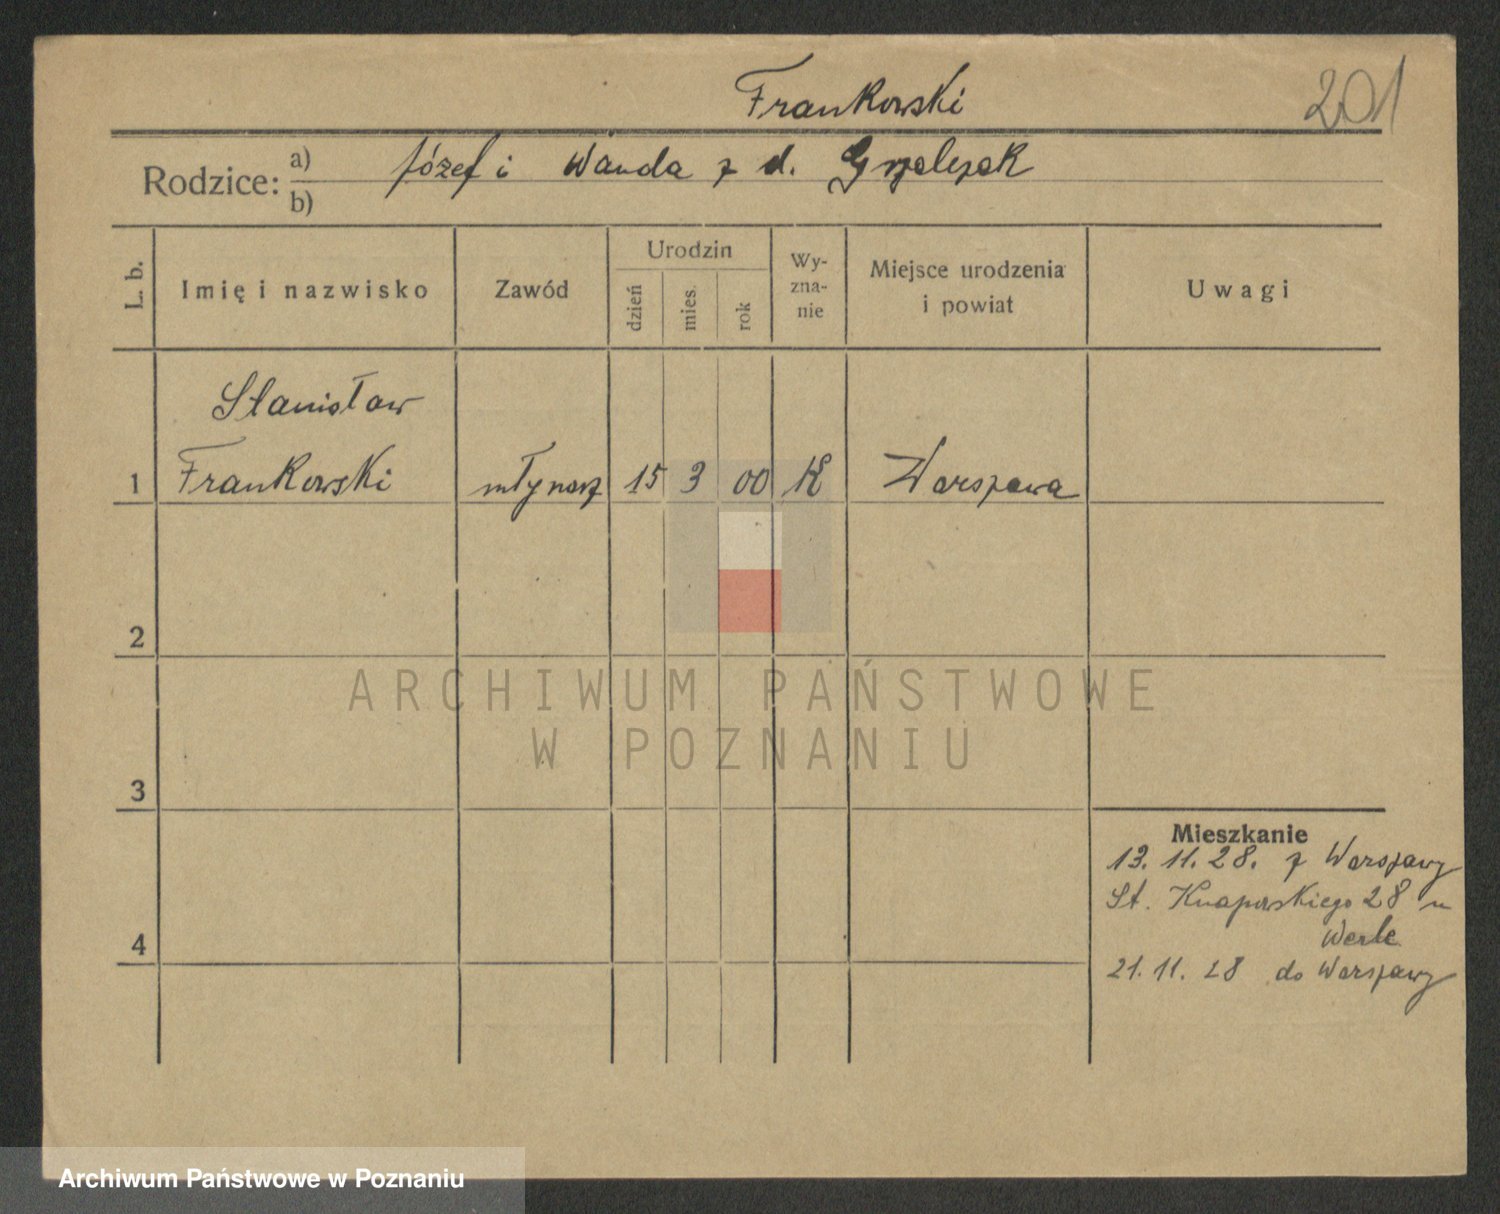 Frankowski
201
Rodzice: a) Józef i Wanda z d. Grzelczak
b)
L. b.
Imię i nazwisko
Zawód
Urodzin
dzień
mies.
rok
Wy-
zna-
nie
Miejsce urodzenia
i powiat
Uwagi
Stanisław
1 Frankowski młynarz 15 3 00 K Warszawa
2
ARCHIWUM PAŃSTWOWE
W POZNANIU
3
Mieszkanie
13. 11. 28. z Warszawy
St. Knapowskiego 28 u
Werle
4
21. 11. 28 do Warszawy
Archiwum Państwowe w Poznaniu